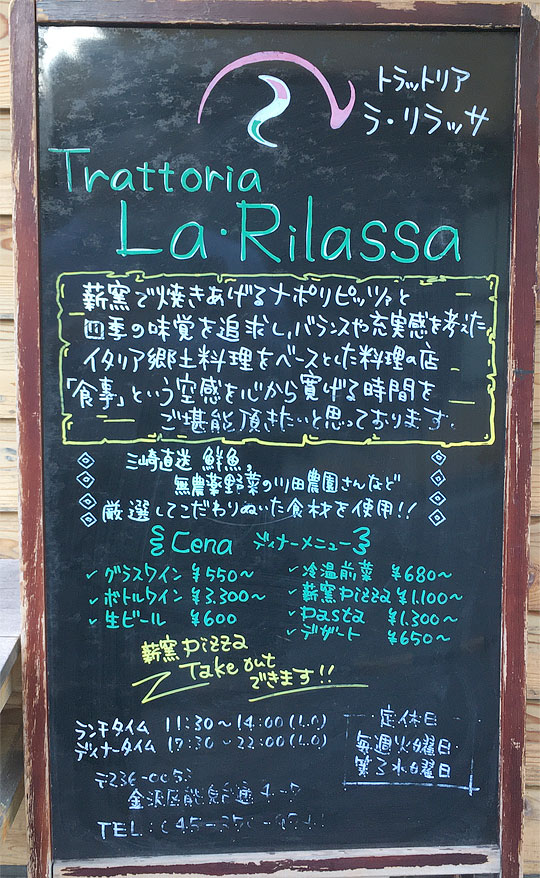 トラットリア
ラ・リラッサ
Trattoria
La・Rilassa
薪窯で焼きあげるナポリピッツァと
四季の味覚を追求し,バランスや充実感を考えた
イタリア郷土料理をベースとした料理の店
「食事」という空感を心から寛げる時間を
ご堪能頂きたいと思っております.
三崎直送 鮮魚,
無農薬野菜の川田農園さんなど
厳選してこだわりぬいた食材を使用!!
Cena ディナーメニュー
✓グラスワイン ¥550〜
✓ボトルワイン ¥3.300〜
✓生ビール ¥600
✓冷温前菜 ¥680〜
✓薪窯pizza ¥1.100〜
✓pasta ¥1.300〜
✓デザート ¥650〜
薪窯pizza
Take out
できます!!
ランチタイム 11:30〜14:00(L.O)
ディナータイム 17:30〜22:00(L.O)
定休日
毎週火曜日
第3水曜日
〒236-005
金沢区能見台通
TEL:045